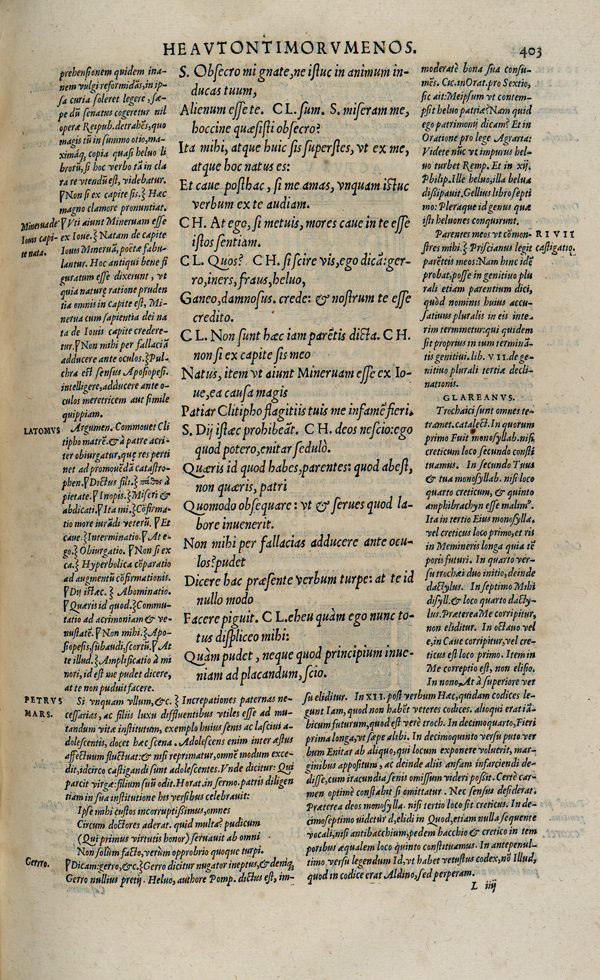 HEAVTONTIMORVMENOS.
403
prehensionem quidem ina-
nem vulgi reformidãs, in ip-
sa curia soleret legere, sæ-
pe dũ senatus cogeretur nil
operæ Reipub. detrahẽs, quo
magis tũ in summo otio, ma-
ximáq; copia quasi heluo li
brorũ, si hoc verbo tã in cla
ra re vtendũ est, videbatur.
Non si ex capite sis.} Hæc
magno clamore pronuntiat.
Vti aiunt Mineruam esse
ex Ioue.} Natam de capite
Iouis Mineruã, poëtæ fabu-
lantur. Hoc antiqui bene si
guratum esse dixerunt, vt
quia naturæ ratione pruden
tia omnis in capite est, Mi-
nerua cum sapientia dei na
ta de Iouis capite credere-
tur. Non mihi per fallaciã
adducere ante oculos.} Pul-
chra est sensus Aposiopesi.
intelligere, adducere ante o-
culos meretricem aut simile
quippiam.
Minerua de
Iouis capi-
te nata.
LATOMVS
Argumen. Commouet Cli
tipho matrẽ. & à patre acri-
ter obiurgatur, quæ res perti
net ad promouẽdã catastro-
phen. Dictus sih.}
pietate. Inopis.} Miseri &
abdicati. Ita mi.} Cõfirma-
tio more iurãdi veterũ. Et
caue.} Interminatio. At e-
go.} Obiurgatio. Non si ex
ca.} Hyperbolica cõparatio
ad augmentũ cõfirmationis.
Dij istæc.} Abominatio.
Quæris id quod.} Commu-
tatio ad acrimoniam & ve-
nustatẽ. Non mihi.} Apo-
siopesis, subaudi, scortũ. At
te illud.} Amplificatio à mi
nori, id est me pudet dicere,
at te non puduit facere.
S. Obsecro mi gnate, ne istuc in animum in-
ducas tuum,
Alienum esse te. CL. sum. S. miseram me,
hoccine quæsisti obsecro?
Ita mihi, atque huic sis superstes, vt ex me,
atque hoc natus es:
Et caue posthac, si me amas, vnquam istuc
verbum ex te audiam.
CH. At ego, si metuis, mores caue in te esse
istos sentiam.
CL. Quos? CH. si scire vis, ego dicã: ger-
ro, iners, fraus, heluo,
Ganeo, damnosus. crede: & nostrum te esse
credito.
CL. Non sunt hæc iam parẽtis dicta. CH.
non si ex capite sis meo
Natus, item vt aiunt Mineruam esse ex Io-
ue, ea causa magis
Patiar Clitipho flagitiis tuis me infamẽ fieri.
S. Dij istæc prohibeãt. CH. deos nescio: ego
quod potero, enitar sedulò.
Quæris id quod habes, parentes: quod abest,
non quæris, patri
Quomodo obsequare: vt & serues quod la-
bore inuenerit.
Non mihi per fallacias adducere ante ocu-
los? pudet
Dicere hac præsente verbum turpe: at te id
nullo modo
Facere piguit. CL. eheu quàm ego nunc to-
tus displiceo mihi:
Quàm pudet, neque quod principium inue-
niam ad placandum, scio.
moderatè bona sua consu-
mẽs. Cic. in Orat. pro Sextio,
sic ait: Meipsum vt contem-
psit heluo patriæ? Nam quid
ego patrimonij dicam? Et in
Oratione pro lege Agraria:
Videte nũc vt impurus hel-
uo turbet Remp. Et in xij.
Philip. Ille heluo, illa beluæ
dissipauit. Gellius libro septi
mo: Pleraque id genus quæ
isti heluones conquirunt.
Parentes meos vt cõmon-
stres mihi.} Priscianus legit
parẽtis meos: Nam hinc idẽ
probat, posse in genitiuo plu
rali etiam parentium dici,
quòd nominis huius accu-
satiuus pluralis in eis inte-
rim terminetur: qui quidem
sit proprius in ium terminã-
tis genitiui. lib. VII. de ge-
nitiuo plurali tertiæ decli-
nationis.
RIVII
castigatio.
GLAREANVS.
Trochaici sunt omnes te-
tramet. catalect. In quorum
primo Fuit monosyllab. nisi
creticum loco secundo consti
tuamus. In secundo Tuus
& tua monosyllab. nisi loco
quarto creticum, & quinto
amphibrachyn esse malimꝰ.
Ita in tertio Eius monosylla.
vel creticus loco primo, et ris
in Memineris longa quia tẽ
poris futuri. In quarto ver-
su trochæi duo initio, deinde
dactylus. In septimo Mihi
disyll. & loco quarto dacty-
lus. Præterea Me corripitur,
non eliditur. In octauo vel
e, in Caue corripitur, vel cre-
ticus est loco primo. Item in
Me correptio est, non elisio.
In nono, At à superiore ver
PETRVS
MARS.
Si vnquam vllum, &c.} Increpationes paternas ne-
cessarias, ac filiis luxu diffluentibus vtiles esse ad mu-
tandum vitæ institutum, exemplo huius senis ac lasciui a-
dolescentis, docet hæc scena. Adolescens enim inter æstus
affectuum fluctuat: & nisi reprimatur, omnẽ modum exce-
dit, idcirco castigandi sunt adolescentes. Vnde dicitur: Qui
parcit virgæ: filium suũ odit. Horat. in sermo. patris diligen
tiam in sua institutione his versibus celebrauit:
Ipse mihi custos incorruptissimus, omnes
Circum doctores aderat. quid multa? pudicum
(Qui primus virtutis honor) seruauit ab omni
Non solũm facto, verùm opprobrio quoque turpi.
Gerro.
Dicam: gerro, &c.} Gerro dicitur nugator ineptus, & deniq;
Gerro nullius pretij. Heluo, authore Pomp. dictus est, im-
su eliditur. In XII. post verbum Hac, quidam codices le-
gunt Iam, quod non habet veteres codices. alioqui erat iã-
bicum futurum, quod est verè troch. In decimoquarto, Fieri
prima longa, vt sæpe alibi. In decimoquinto versu puto ver
bum Enitar ab aliquo, qui locum exponere voluerit, mar-
ginibus appositum, ac deinde aliis ansam infarciendi de-
disse, cum iracundia senis omissum videri possit. Certè car-
men optimè constabit si omittatur. Nec sensus desiderat.
Præterea deos monosylla. nisi tertio loco sit creticus. In de-
cimoseptimo viderur d, elidi in Quod, etiam nulla sequente
vocali, nisi antibacchium, pedem bacchio & cretico in tem
poribus æqualem loco quinto constituamus. In antepenul-
timo versu legendum Id, vt habet vetustus codex, nõ Illud,
quod in codice erat Aldino, sed perperam.
L iiij